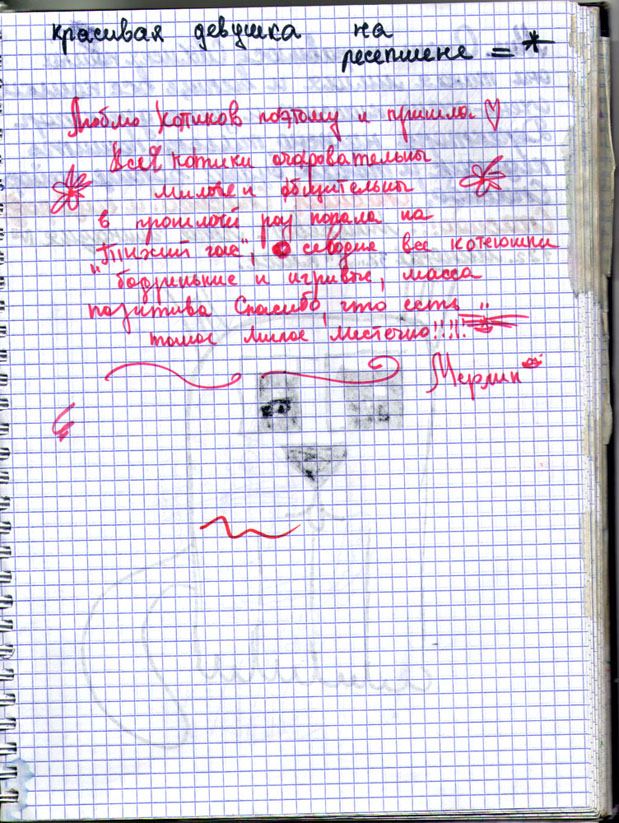 красивая девушка на
ресепшене = *
Люблю котиков поэтому и пришла ♡
Все котики очаровательны
милые и общительны
в прошлый раз попала на
"Тихий час", сегодня все котеюшки
бодренькие и игривые, масса
позитива Спасибо, что есть
такое милое местечко!!!!
Мерлин